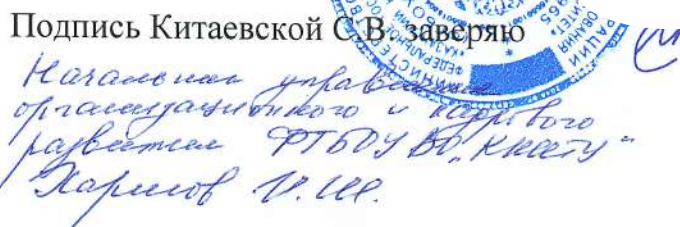 Подпись Китаевской С.В. заверяю
Начальник управления
организационного и кадрового
развития ФГБОУ ВО „КНИТУ"